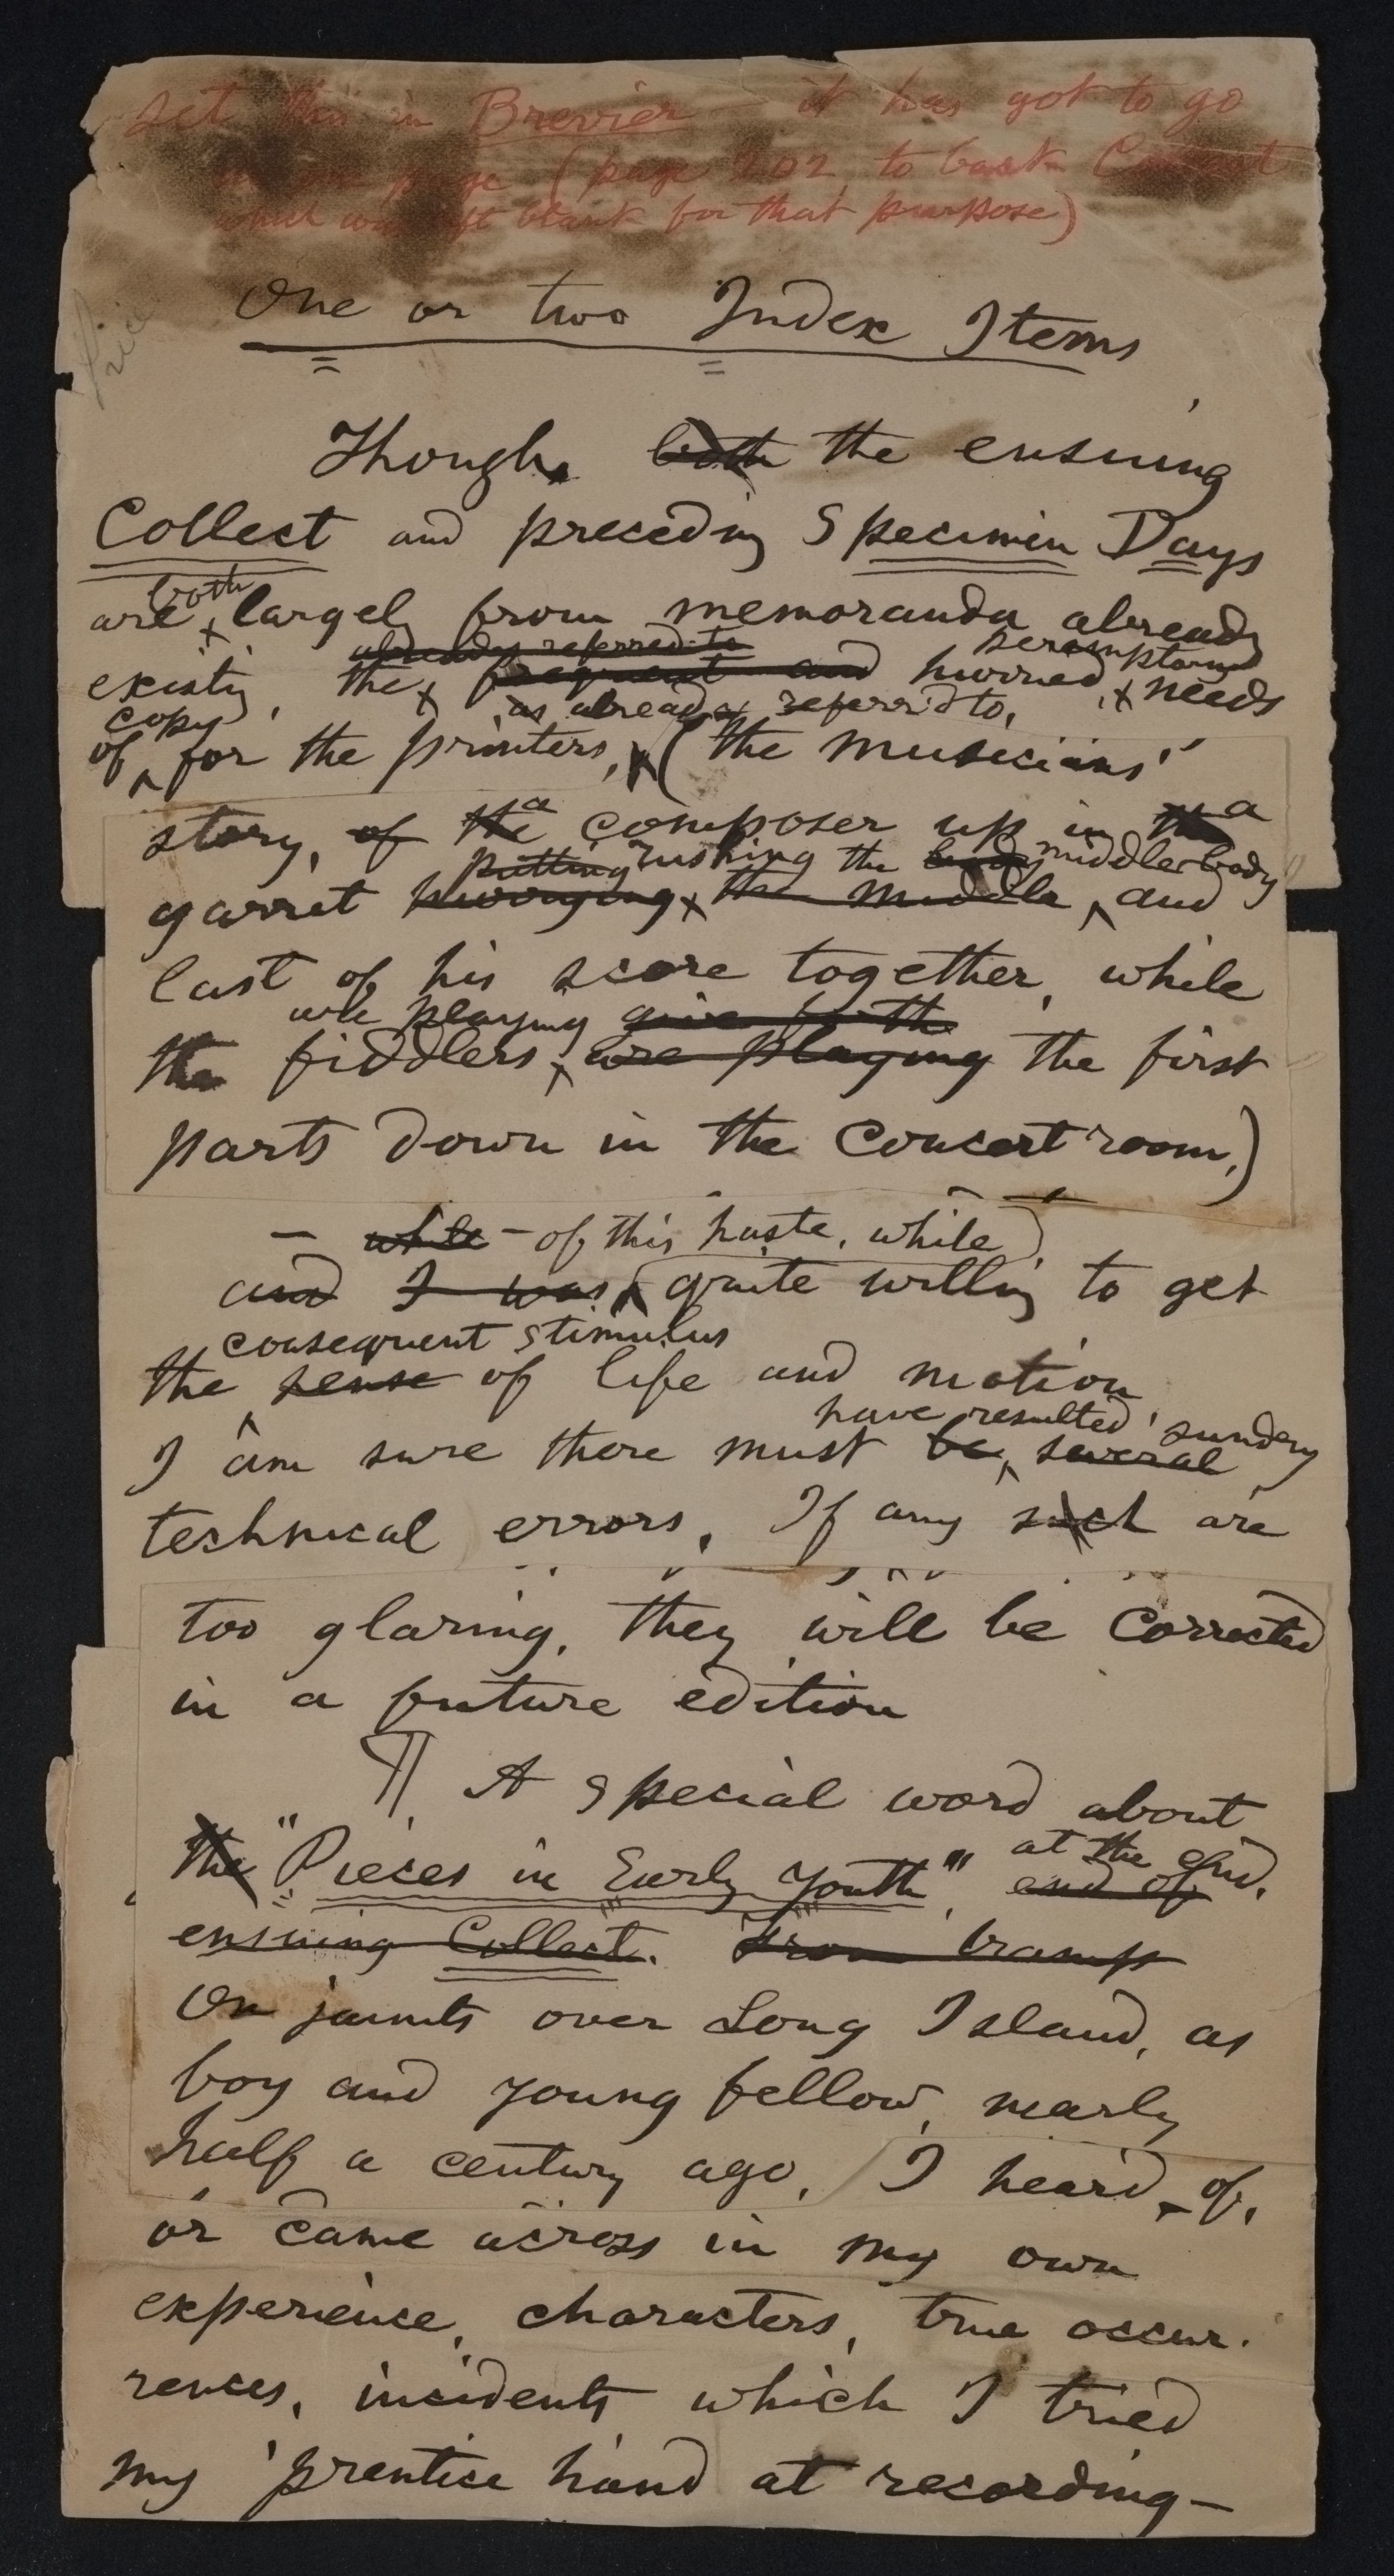 Set this in Brevier – it has got to go
in one page (page 202, to back Contents
which was left blank for that purpose)
One or two Index Items
Though both the ensuing
Collect and preceding Specimen Days
both
are largely from memoranda already
already referred to peremptory
existing, the frequent and hurried, needs
copy , as already referred to,
of for the printers, (the musicians'
story, of the a composer up in the a
putting rushing the body middle body
garret hurrying the middle, and
last of his score together, while
are playing give forth
the fiddlers are playing the first
parts down in the concert room,)
– while – of this haste, while
and I was quite willing to get
consequent stimulus
the sense of life and motion
have resulted sundry
I am sure there must be several
technical errors. If any such are
too glaring, they will be corrected
in a future edition
¶ A special word about
at the end.
the "Pieces in Early Youth" end of
ensuing Collect. From tramps
On jaunts over Long Island, as
boy and young fellow, nearly
half a century ago, I heard of,
or came across in my own
experience, characters, true occur-
rences, incidents which I tried
my 'prentice hand at recording–